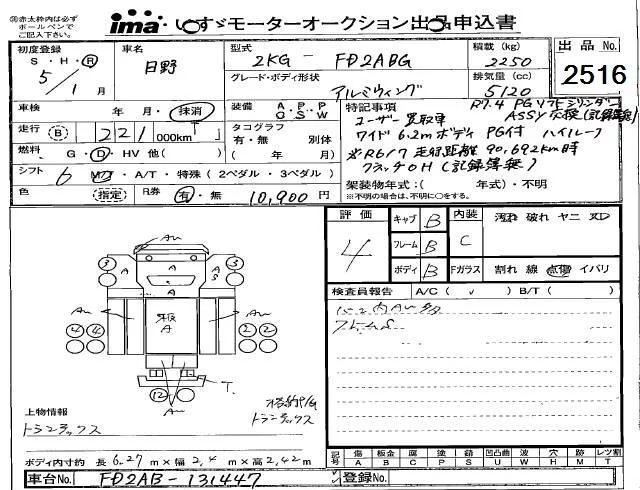 ㊟赤太枠内は必ず
ボールペンで
ご記入下さい。
ima いすゞモーターオークション出品申込書
初度登録
S・H・R
5/1月
車名
日野
型式
2KG - FD2ABG
グレード・ボディ形状
アルミウィング
積載 (kg)
2250
排気量 (cc)
5120
出品 No.
2516
車検
年・月・抹消
走行 B 221 000km
燃料 G・D・HV 他( )
シフト 6 MT・A/T・特殊 (2ペダル・3ペダル)
色 (指定) R券 有・無 10,900円
装備 A/C P/S P/W
タコグラフ
有・無 別体
( 年/ 月)
特記事項 R7.4 PGリフトシリンダー
ASSY交換(記録簿無)
ユーザー買取車
ワイド 6.2mボディ PG付 ハイルーフ
※R6/7 走行距離 90,692km時
クラッチOH (記録簿無)
架装物年式:( 年式)・不明
※不明の場合は、不明に○をする。
評価
4
キャブ B
フレーム B
ボディ B
内装
C
Fガラス
汚れ 破れ ヤニ ヌロ
割れ 線 点傷 イバリ
検査員報告 A/C ( ✓ ) B/T ( )
上物情報
トランテックス
格納P/G
トランテックス
ボディ内寸約 長 6.27 m×幅 2.4 m×高 2.42 m
記号 傷A 板金B 腐C 塗P 錆S 凹凸曲U 波W 穴H 跡M レンズ割T
車台No. FD2AB-131447
登録No.